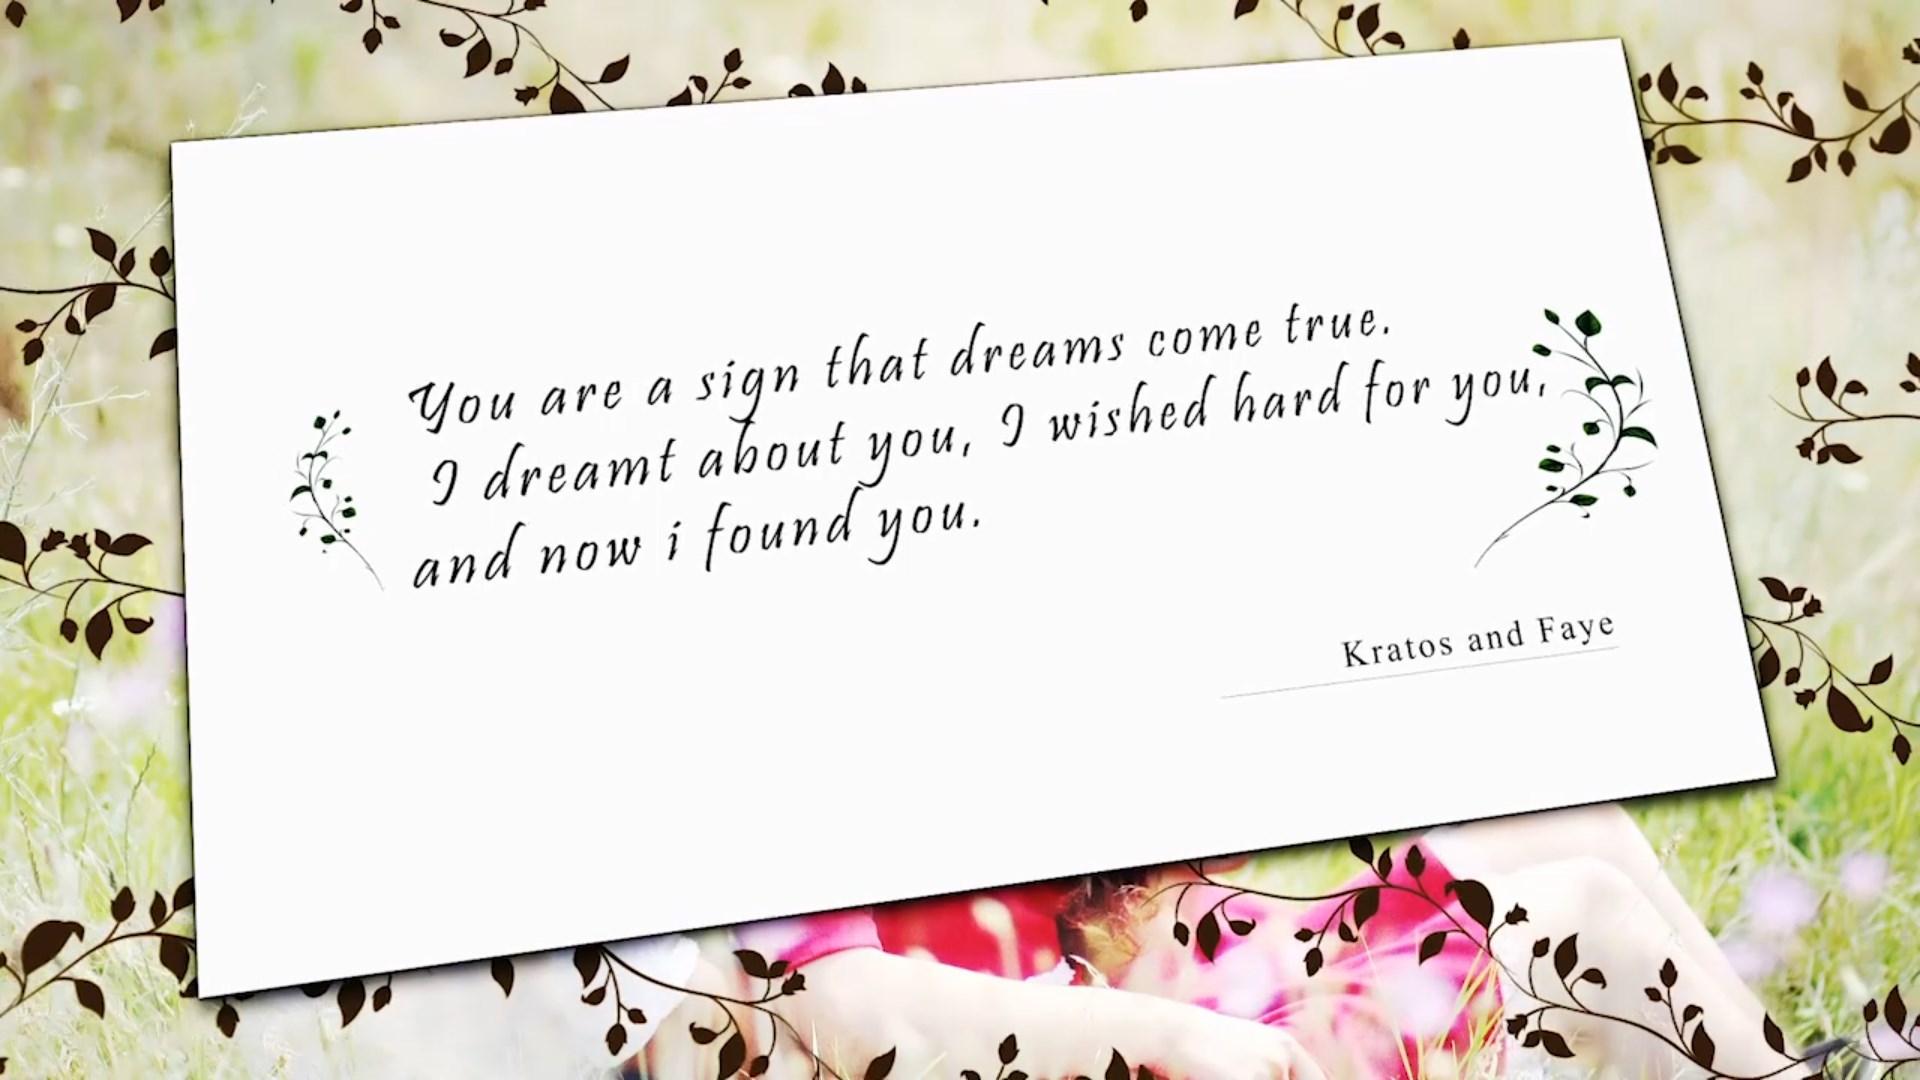 You are a sign that dreams come true.
I dreamt about you, I wished hard for you,
and now i found you.
Kratos and Faye